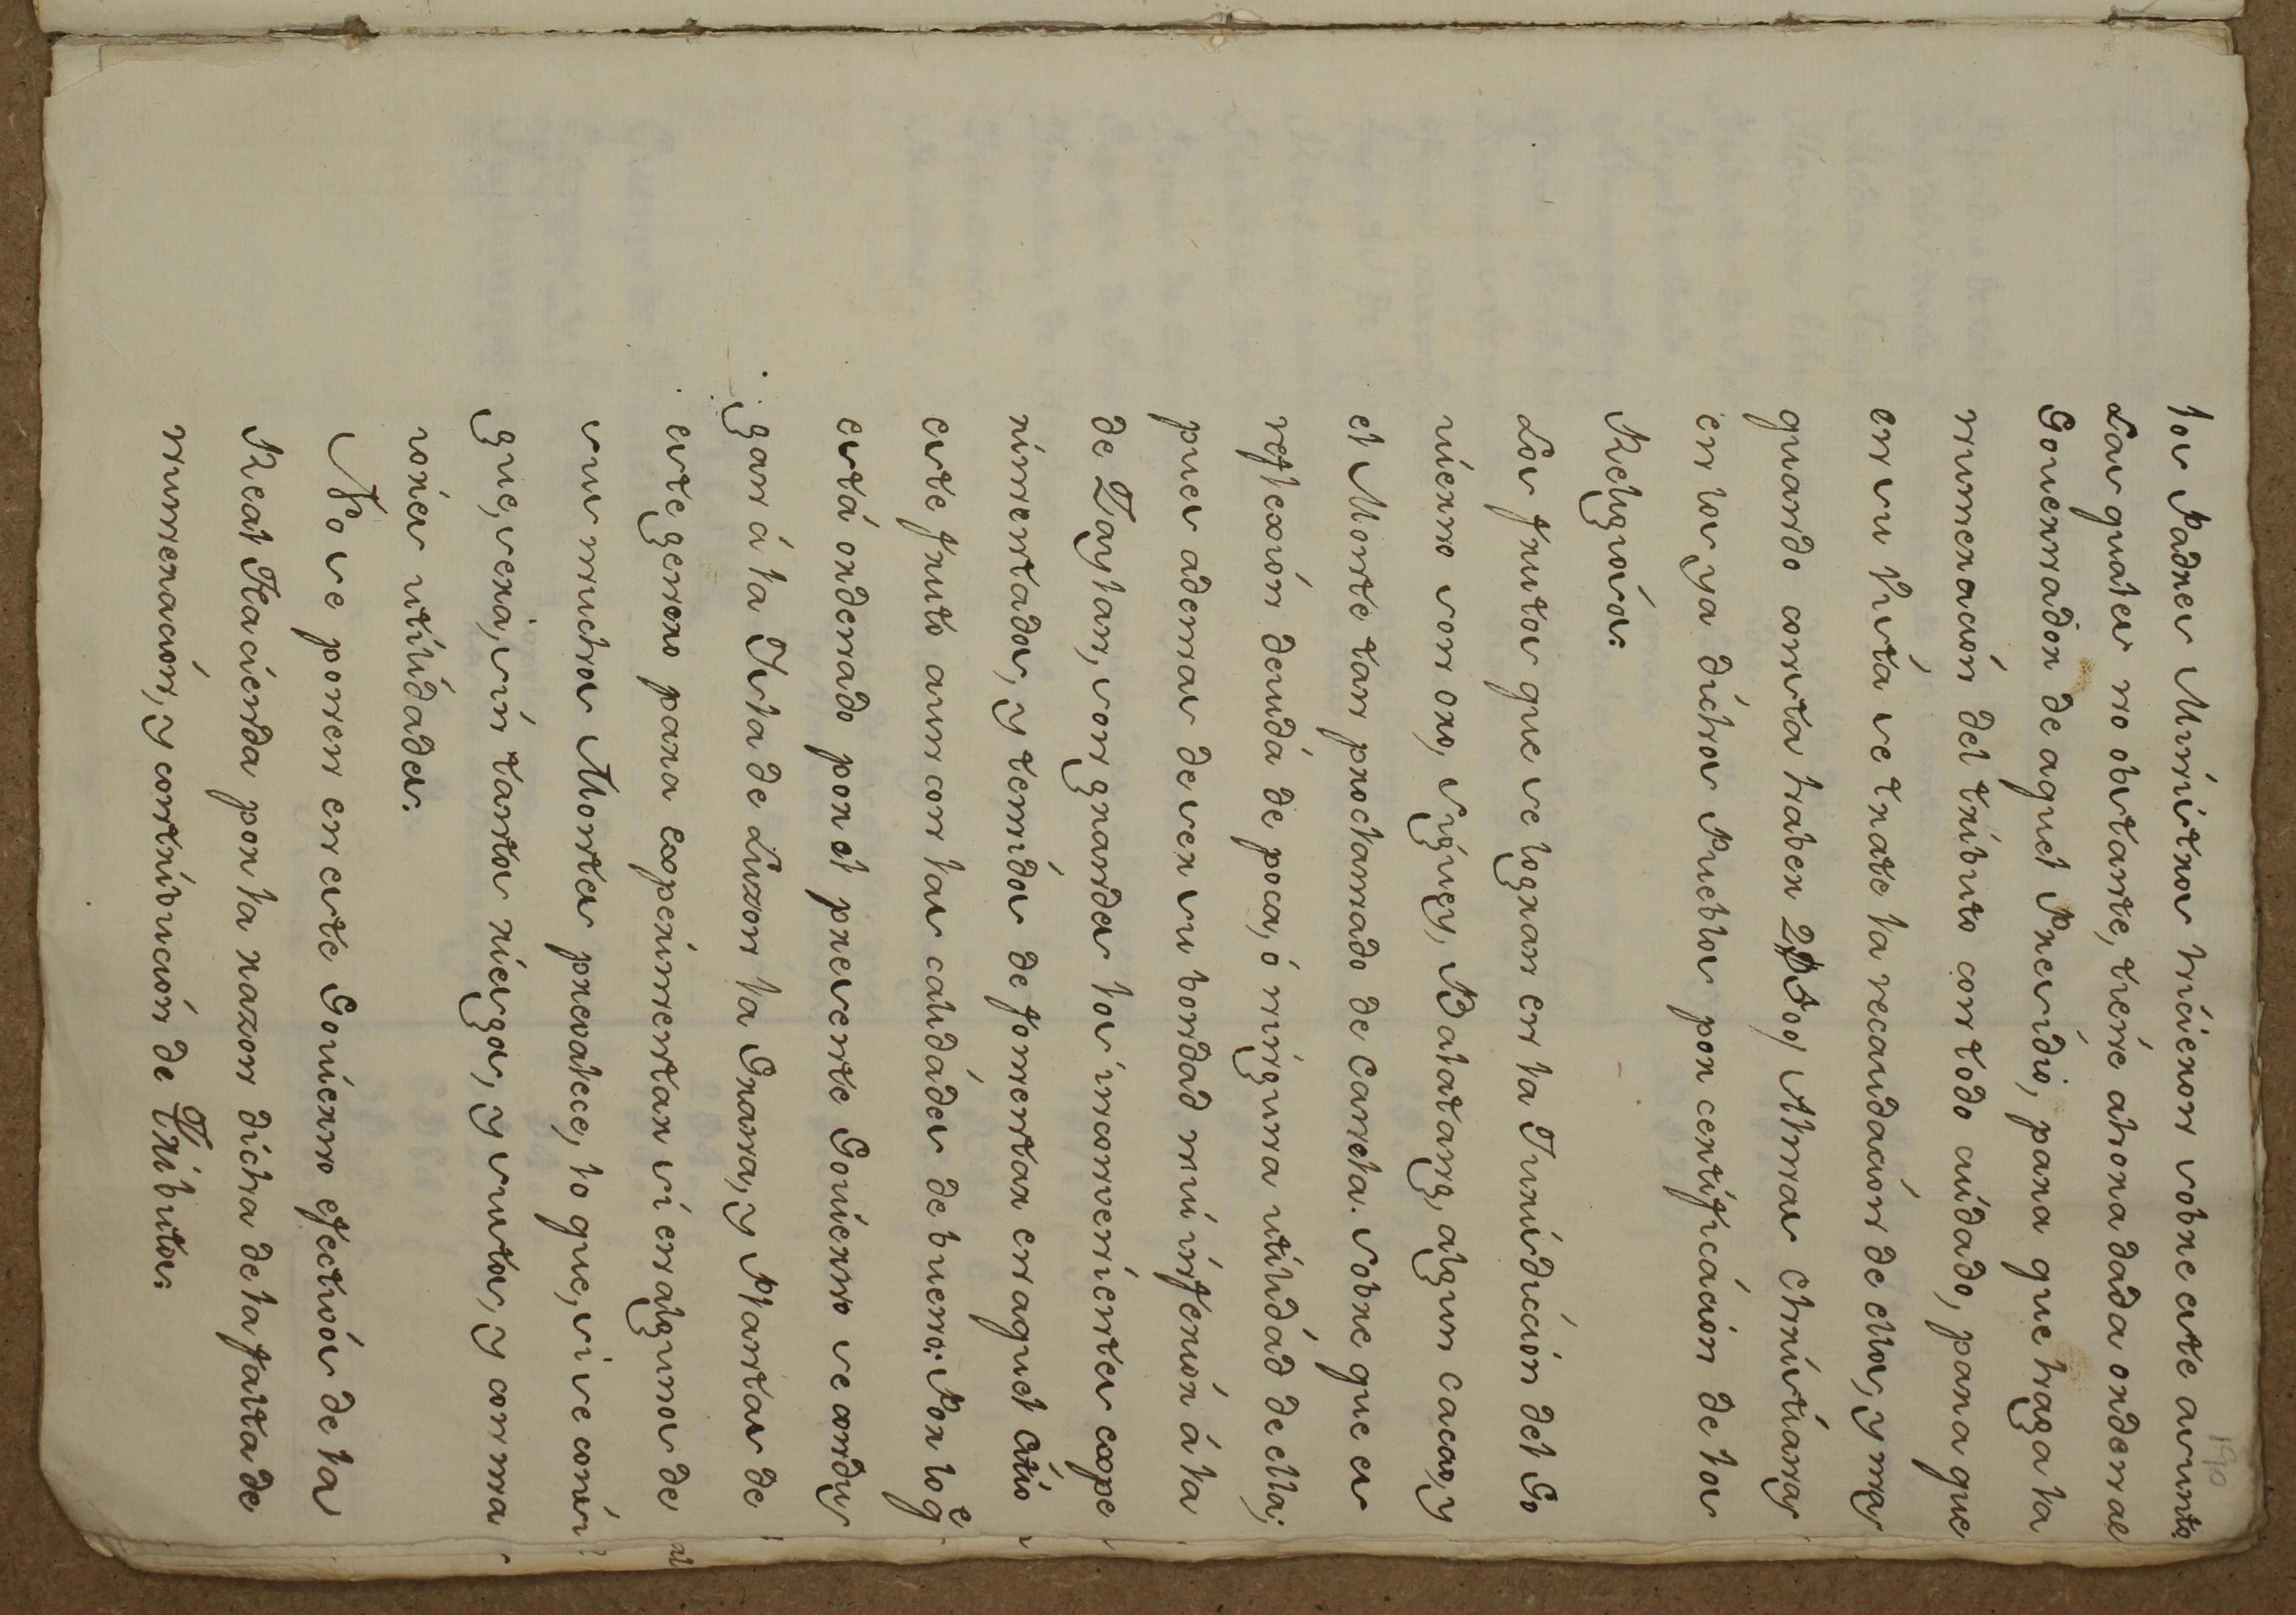 190
los Padres Ministros hicieron sobre este asunto
Las quales no obstante, tiene ahora dada orden ae
Governador de aquel Presidio, para que haga la
numeracion del tributo con todo cuidado, para que
en su vista se trate la recaudacion de ellos, y mas
quando consta haber Almas christianas
en los ya dichos Pueblos por certificacion de los
Religiosos:
Los frutos que se logran en la Jurisdiccion del Go
vierno son oro, Siguey, Balatang, algun cacao, y
el Monte tan proclamado de Canela. Sobre que es
reflexion devida de poca, ó ninguna utilidad de ella;
pues ademas de ser su bondad mui inferior á la
de Zaylan, son grandes los inconvenientes expe
rimentados, y temidos de fomentar en aquel citio
este fruto aun con las calidades de bueno: Por lo q̃
está ordenado por el presente Govierno se condus
gan á la Isla de Luzon la Grana, y Plantas de
este genero para experimentar si en algunos de
sus muchos Montes prevalece, lo que, si se consi
gue, será, sin tantos riesgos, y sustos, y con ma
iores utilidades.
No se ponen en este Govierno efectivos de la
Real Hacienda por la razon dicha de la falta de
numeracion, y contribucion de Tributos: